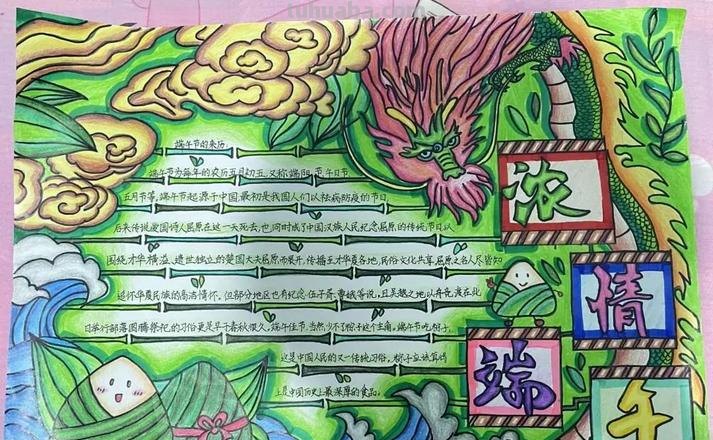 tuhuaba.com
端午节的来历
端午节为每年的农历五月初五,又称端阳节,午日节
五月节等,端午节起源于中国,最初是我国人们以祛病防疫的节日,
后来传说爱国诗人屈原在这一天死去,也同时成了中国汉族人民纪念屈原的传统节日以
围绕才华横溢、遗世独立的楚国大夫屈原而展开,传播至华夏各地,民俗文化共享,屈原之名人尽皆知
追怀华夏民族的高洁情怀。但部分地区也有纪念伍子胥、曹娥等说,且吴越之地以舟竞渡在此
日举行部落图腾祭祀的习俗更是早于春秋很久。端午佳节,当然少不了粽子这个主角。端午节吃粽子,
这是中国人民的又一传统习俗。粽子应该算得
上是中国历史上最深厚的食品。
浓
情
端
午